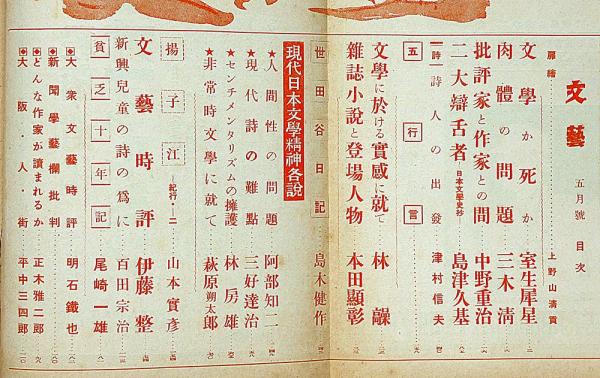 文藝 五月號 目次
扉繪 上野山淸貢
文學か死か 室生犀星
肉體の問題 三木淸
批評家と作家との間 中野重治
二大辯舌者―日本文學史抄― 島津久基
―詩―詩人の出發 津村信夫
五行言
文學に於ける實感に就て 林 䕺
雜誌小說と登場人物 本田顯彰
世田谷日記 島木健作
現代日本文學精神各說
★人間性の問題 阿部知二
★現代詩の難點 三好達治
★センチメンタリズムの擁護 林房雄
★非常時文學に就て 萩原朔太郞
揚子江―紀行―二 山本實彥
文藝時評 伊藤整
新興兒童の詩の爲に 百田宗治
貧乏十年記 尾崎一雄
◆大衆文藝時評 明石鐵也
◆新聞學藝欄批判
◆どんな作家が讀まれるか 正木雅二郞
◆大阪人・街 平中三四郞